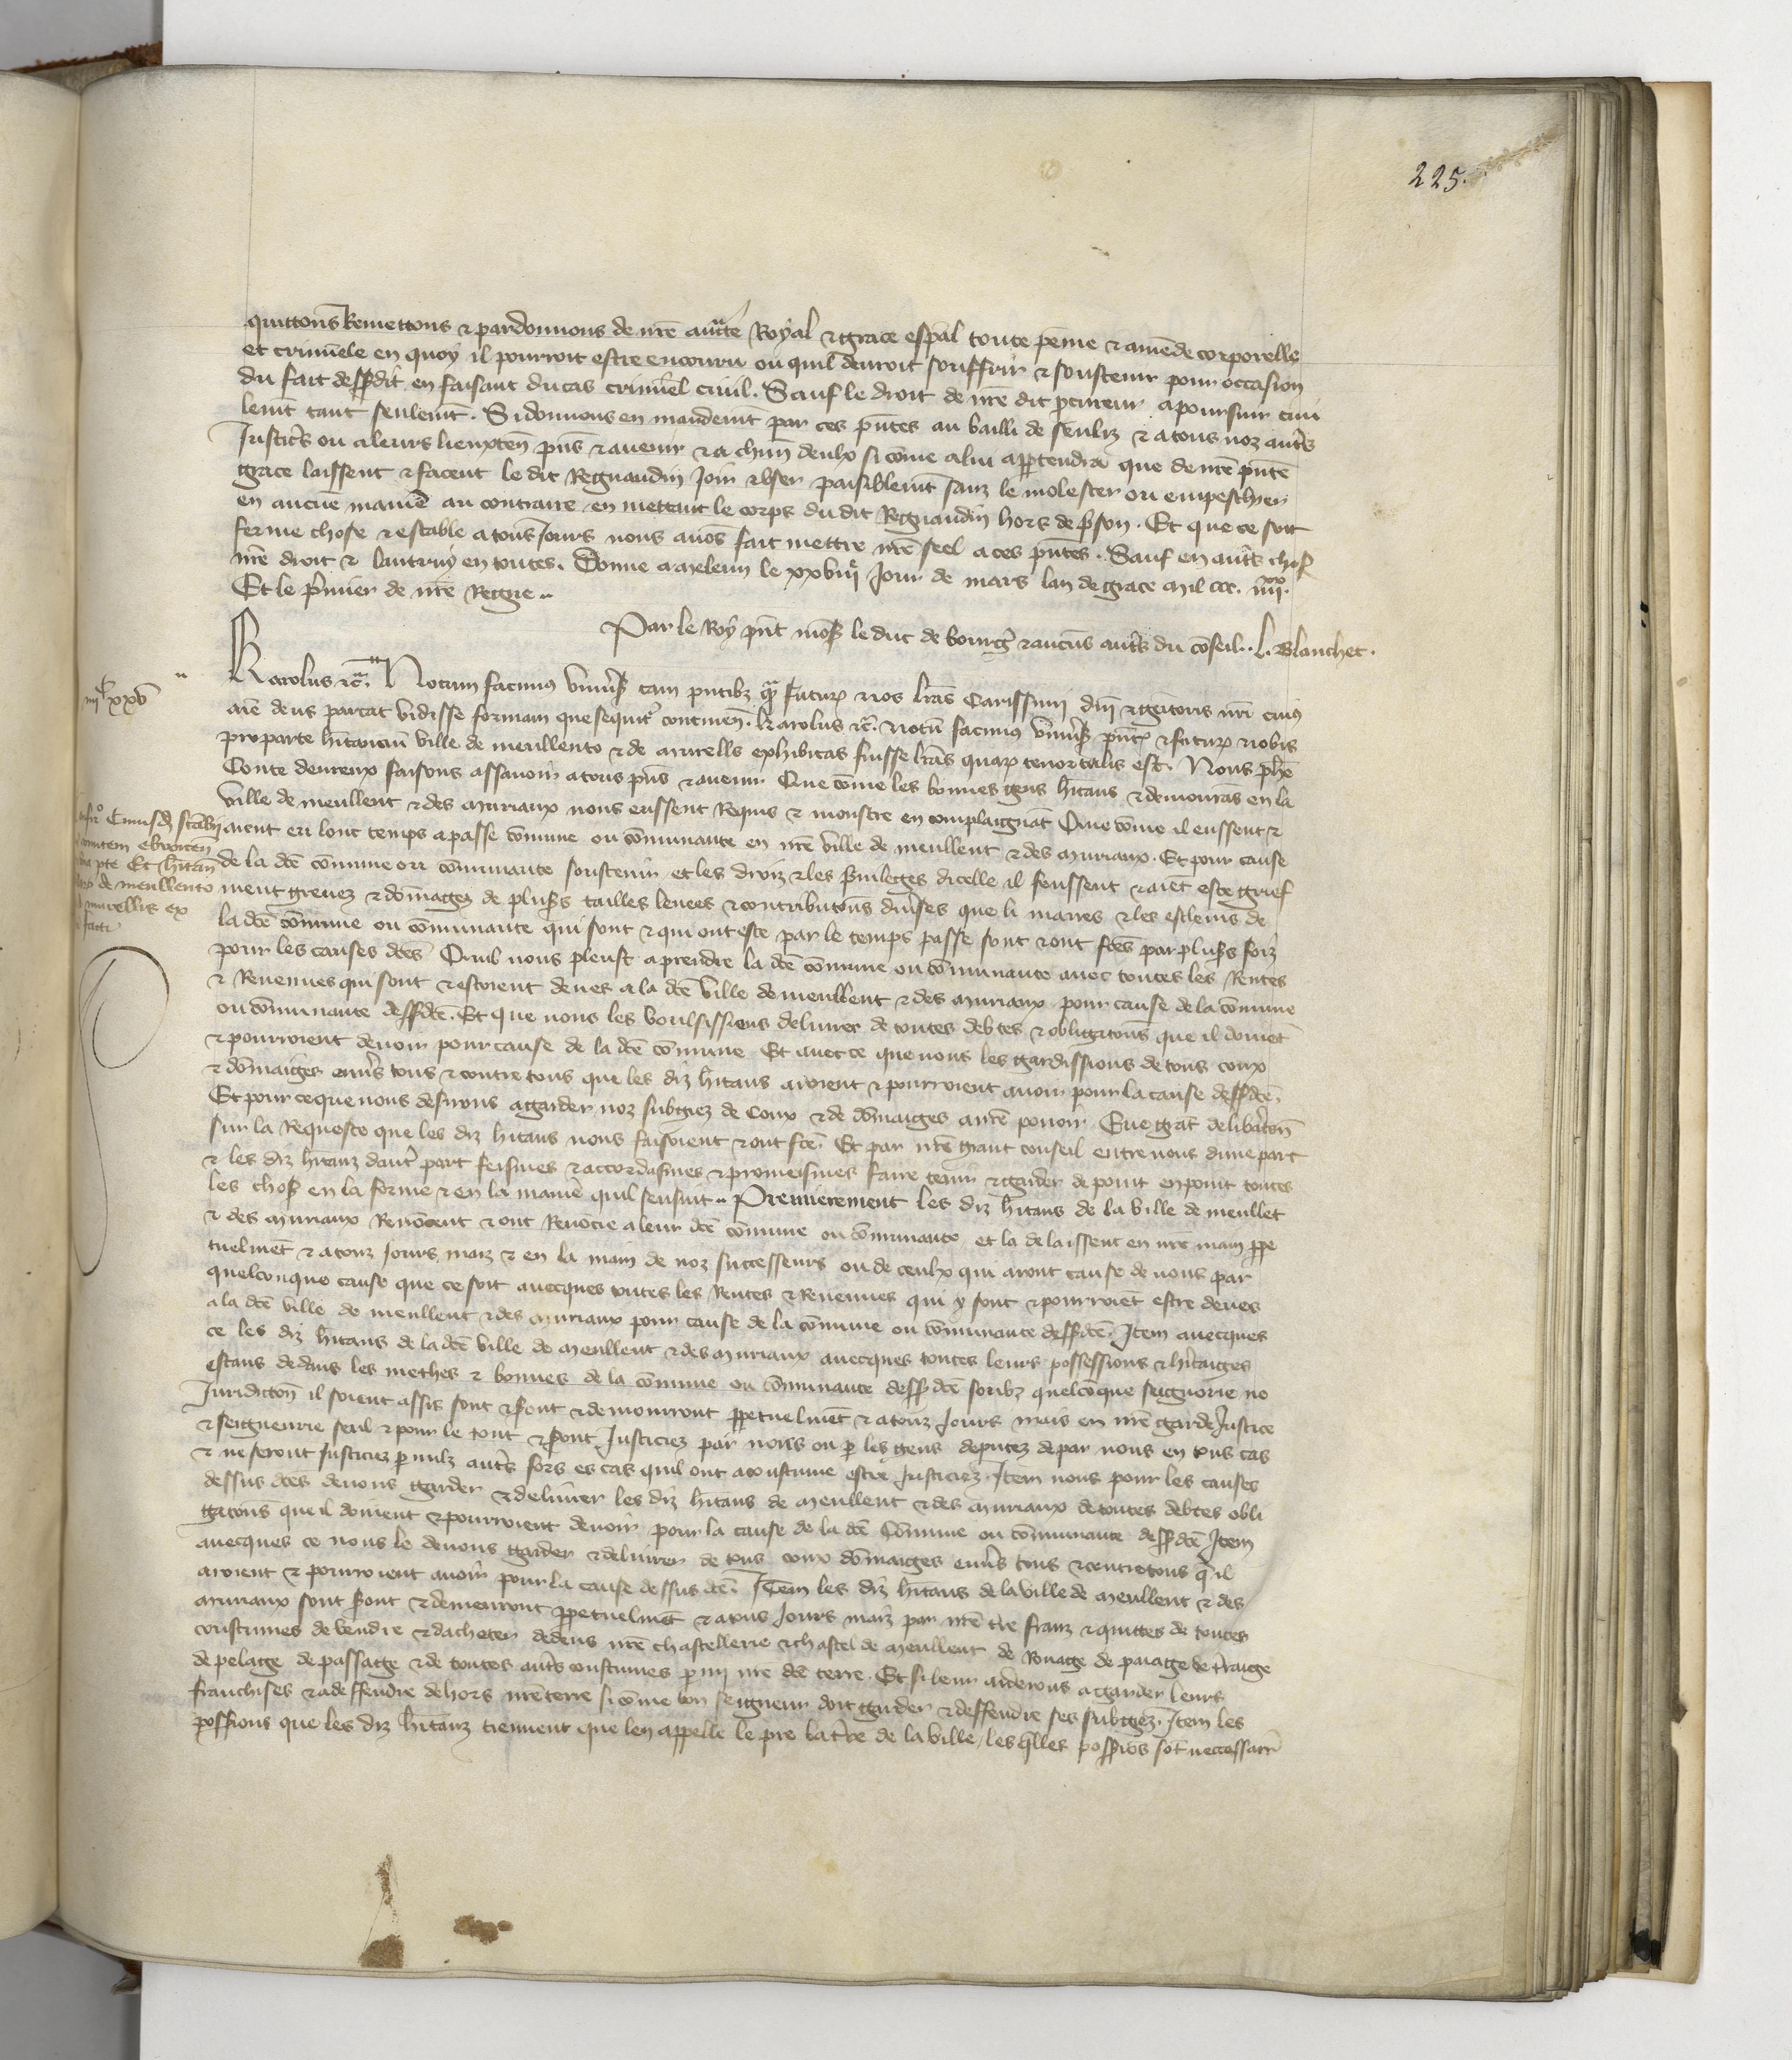 225.
quittons Remettons & pardonnons de nre aucte Royal & grace espal toute peine & amende corporelle
et crimele en quoy il pourroit estre encouru ou quil deuroit souffrir & soustenir pour occasion
du fait dessusdit en faisant du cas criminel ciuil. Sauf le droit de nre dit procureur a poursuir ciui
lemt tant seulemt. Si donnons en mandemt par ces pntes au bailli de senliz & a tous noz autrs
Justicrs ou a leurs lieuxten pns & auenir & a chun deulx si come a lui appartendra que de nre pnte
grace laissent & facent le dit Regnaudin Joir & vser paisiblemt sanz le molester ou empeschier
en aucune maniere au contraire en mettant le corps du dit Regnaudin hors de prison. Et que ce soit
ferme chose & estable a tous Jours nous auons fait mettre nre seel a ces pntes. Sauf en autrs chos
nre droit & lautruy en toutes. Donne a meleun le xxviije Jour de mars lan de grace mil ccc. iiijxx.
Et le premier de nre Regne..
Par le Roy pnt mons le duc de bourg & aucuns autrs du conseil.. L. Blanchet.
iijc xxv
Karolus &c. Notum facimus vniuersis tam pntibz qm futuris nos lras Carissimi dni & genitoris nri cuius
aie deus parcat vidisse formam que sequitr continen. Karolus &c. notu facimus vniuersis pntibz & futuris nobis
pro parte hitanciu ville de meullento & de murellis exhibitas fuisse lras quarum tenor talis est. Nous phe
Conte deureux faisons assauoir a tous pns & auenir Que come les bonnes gens hitans & demourans en la
ville de meullent & des muriaux nous eussent Requis & monstre en complaignat Que come il eussent &
aient eu lonc temps a passe comune ou comunaute en nre ville de meullent & des muriaux. Et pour cause
de la dce comune ou comunaute soustenir et les droiz & les priuileges dicelle il feussent & aient este grief
ment greuez & domagez de plusrs tailles leuees & contributons diuerses que li maires & les escheuins de
la dce comune ou comunaute qui sont & qui ont este par le temps passe sont & ont fces par plusrs foiz
pour les causes dces Quil nous pleust a prendre la dce comune ou comunaute auec toutes les Rentes
& Reuenues qui sont & estoient deues a la dce ville de meullent & des muriaux pour cause de la comune
ou comunaute dessusdce. Et que nous les voulsissions deliurer de toutes debtes & obligatons que il doiuet
& pourroient deuoir pour cause de la dce comune Et auec ce que nous les gardissions de tous coux
& domaiges enuers tous & contre tous que les diz hitans auoient & pourroient auoir pour la cause dessusdce.
Et pour ce que nous desirons a garder noz subgiez de Coux & de domaiges a nre pouoir Eue grat deliberaton
sur la Requeste que les diz hitans nous faisoient & ont fce. Et par nre grant conseil entre nous dune part
& les diz hitanz dautr part feismes & accordasmes & promeismes faire tenir & garder de point en point toutes
les choses en la forme & en la maniere quil sensuit.. Premierement les diz hitans de la ville de meullet
& des muriaux Renocent & ont Renocie a leur dce comune ou comunaute et la delaissent en nre main ppe
tuelmet & a touz Jours maiz & en la main de noz successeurs ou de ceulx qui aront cause de nous par
quelconque cause que ce soit auecques toutes les Rentes & Reuenues qui y sont & pourroiet estre deues
a la dce ville de meullent & des muriaux pour cause de la comune ou comunaute dessusdce. Item auecques
ce les diz hitans de la dce ville de meullent & des muriaux auecques toutes leurs possessions & hitaiges
estans dedans les methes & bonnes de la comune ou comunaute dessusdce soubz quelconque seignorie ne
Juridicton il soient assis sont & seront & demourront ppetuelmet & a touz Jours mais en nre garde Justice
& seigneurie seul & pour le tout & seront Justiciez par nous ou par les gens deputez de par nous en tous cas
& ne seront Justiciez par nulz autrs fors es cas quil ont acoustume estre Justiciez. Item nous pour les causes
dessus dces deuons garder & deliurer les diz hitans de meullent & des muriaux de toutes debtes obli
gatons que il doiuent & pourroient deuoir pour la cause de la dce Comune ou comunaute dessusdce Item
auecques ce nous le deuons garder & deliurer de tous coux domaiges enuers tous & contre tous qil
auoient & pourroient auoir pour la cause dessus dce. Item les diz hitans de la ville de meullent & des
muriaux sont seront & demeurront ppetuelmet & a tous Jours maiz par nre tre frans & quittes de toutes
coustumes de vendre & dacheter dedens nre chastellerie & chastel de meullent de Rouage de paiage de traige
de pelage de passage & de toutes autrs coustumes par mi nre dce terre. Et si leur aiderons a garder leurs
franchises & a deffendre dehors nre terre si come bon seigneur doit garder & deffendre ses subgez. Item les
possions que les diz hitanz tiennent que len appelle le pre la tre de la ville / lesqlles possios sot neccessair
de meullento
murellis ex
facti